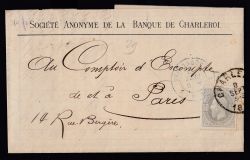 SOCIÉTÉ ANONYME DE LA BANQUE DE CHARLEROI
Au Comptoir d'Escompte
de et à Paris
14 Rue Bergère
CHARLE